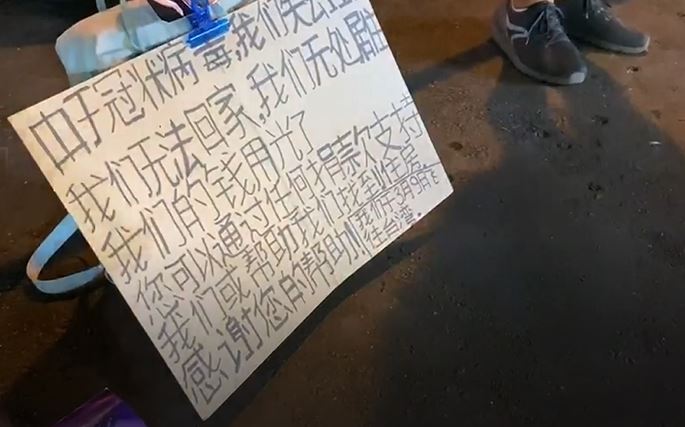 由于冠状病毒,我们失
我们无法回家,我们无处
我们的钱用光了
您可以通过任何捐款支持
我们或帮助我们找到住房
感谢您的帮助!!
我们于3月9日飞
往台湾.